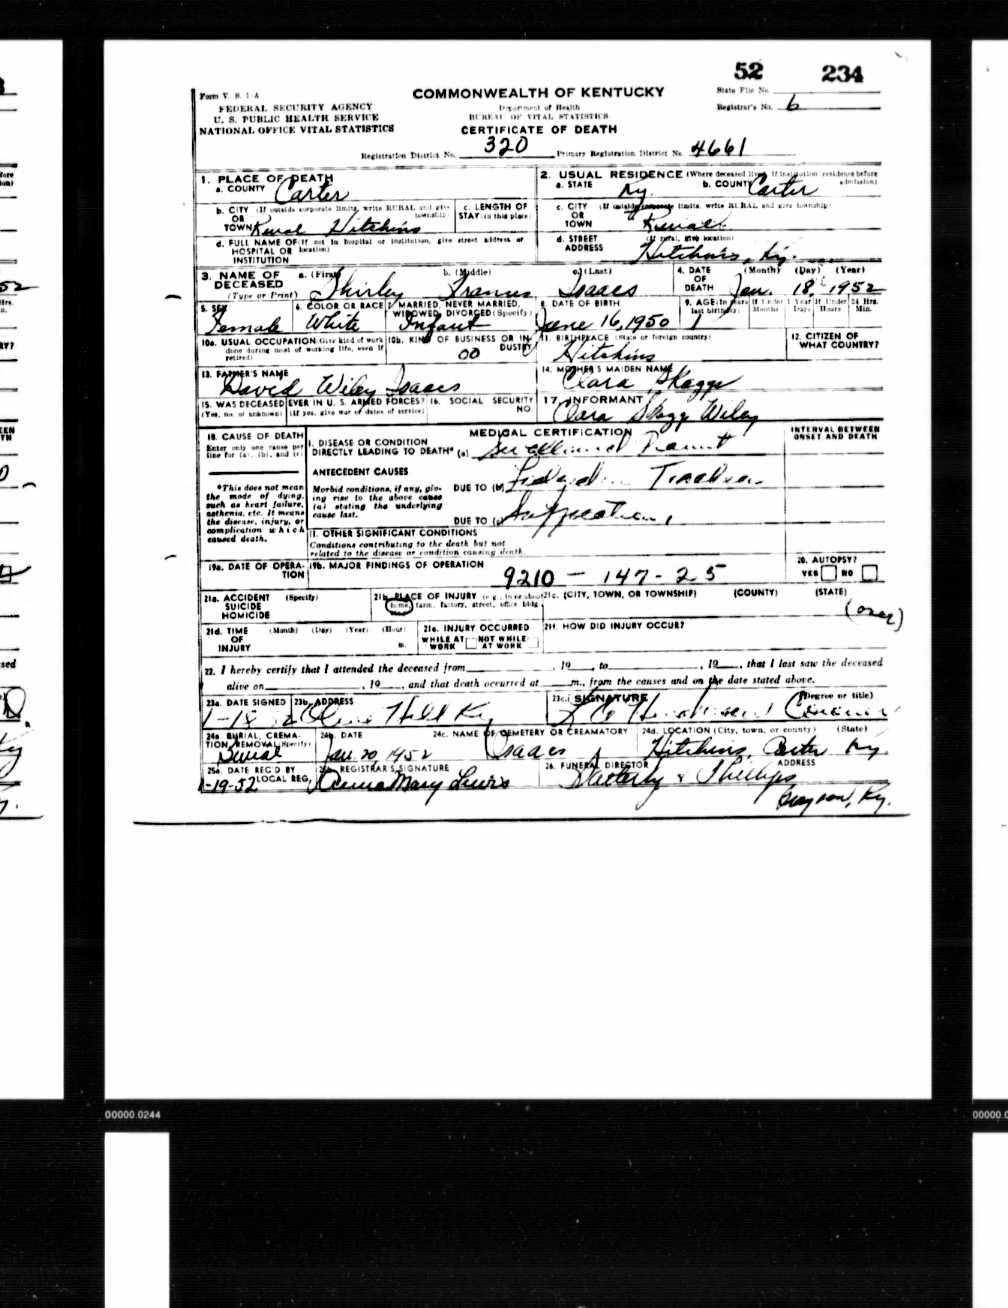 52 234
Form V. S. 1-A COMMONWEALTH OF KENTUCKY State File No.
FEDERAL SECURITY AGENCY Department of Health Registrar's No. 6
U. S. PUBLIC HEALTH SERVICE BUREAU OF VITAL STATISTICS
NATIONAL OFFICE VITAL STATISTICS CERTIFICATE OF DEATH
Registration District No. 320 Primary Registration District No. 4661
1. PLACE OF DEATH 2. USUAL RESIDENCE (Where deceased lived. If institution: residence before admission)
a. COUNTY Carter a. STATE Ky. b. COUNTY Carter
b. CITY (If outside corporate limits, write RURAL and give township) OR TOWN Rural Hitchins c. LENGTH OF STAY (in this place) c. CITY (If outside corporate limits, write RURAL and give township) OR TOWN Rural
d. FULL NAME OF (If not in hospital or institution, give street address or location) HOSPITAL OR INSTITUTION d. STREET ADDRESS (If rural, give location) Hitchins, Ky.
3. NAME OF DECEASED (Type or Print) a. (First) Shirley b. (Middle) Francis c. (Last) Isaacs 4. DATE OF DEATH (Month) (Day) (Year) Jan. 18, 1952
5. SEX Female 6. COLOR OR RACE White 7. MARRIED, NEVER MARRIED, WIDOWED, DIVORCED (Specify) Infant 8. DATE OF BIRTH June 16, 1950 9. AGE (In years last birthday) 1 If Under 1 Year Months Days If Under 24 Hrs. Hours Min.
10a. USUAL OCCUPATION (Give kind of work done during most of working life, even if retired) 10b. KIND OF BUSINESS OR INDUSTRY 00 11. BIRTHPLACE (State or foreign country) Hitchins 12. CITIZEN OF WHAT COUNTRY?
13. FATHER'S NAME David Wiley Isaacs 14. MOTHER'S MAIDEN NAME Clara Skaggs
15. WAS DECEASED EVER IN U. S. ARMED FORCES? (Yes, no, or unknown) (If yes, give war or dates of service) 16. SOCIAL SECURITY NO. 17. INFORMANT Clara Skagg Wiley
18. CAUSE OF DEATH Enter only one cause per line for (a), (b), and (c) MEDICAL CERTIFICATION INTERVAL BETWEEN ONSET AND DEATH
I. DISEASE OR CONDITION DIRECTLY LEADING TO DEATH* (a)
*This does not mean the mode of dying, such as heart failure, asthenia, etc. It means the disease, injury, or complication which caused death.
ANTECEDENT CAUSES
Morbid conditions, if any, giving rise to the above cause (a) stating the underlying cause last. DUE TO (b)
DUE TO (c) Suffocation,
II. OTHER SIGNIFICANT CONDITIONS
Conditions contributing to the death but not related to the disease or condition causing death.
19a. DATE OF OPERATION 19b. MAJOR FINDINGS OF OPERATION 9210 - 147 - 25 20. AUTOPSY? YES NO
21a. ACCIDENT SUICIDE HOMICIDE (Specify) 21b. PLACE OF INJURY (e.g., in or about home, farm, factory, street, office bldg. 21c. (CITY, TOWN, OR TOWNSHIP) (COUNTY) (STATE)
(over)
21d. TIME OF INJURY (Month) (Day) (Year) (Hour) m. 21e. INJURY OCCURRED WHILE AT WORK NOT WHILE AT WORK 21f. HOW DID INJURY OCCUR?
22. I hereby certify that I attended the deceased from , 19 , to , 19 , that I last saw the deceased
alive on , 19 , and that death occurred at m., from the causes and on the date stated above.
23a. DATE SIGNED 1-18-52 23b. ADDRESS Olive Hill Ky 23c. SIGNATURE (Degree or title) Coroner
24a. BURIAL, CREMATION, REMOVAL (Specify) Burial 24b. DATE Jan. 20, 1952 24c. NAME OF CEMETERY OR CREAMATORY Isaacs 24d. LOCATION (City, town, or county) (State) Hitchins, Carter Ky.
25a. DATE REC'D BY LOCAL REG. 1-19-52 25b. REGISTRAR'S SIGNATURE Mary Lewis 26. FUNERAL DIRECTOR & Phillips ADDRESS
Grayson, Ky.
00000.0244